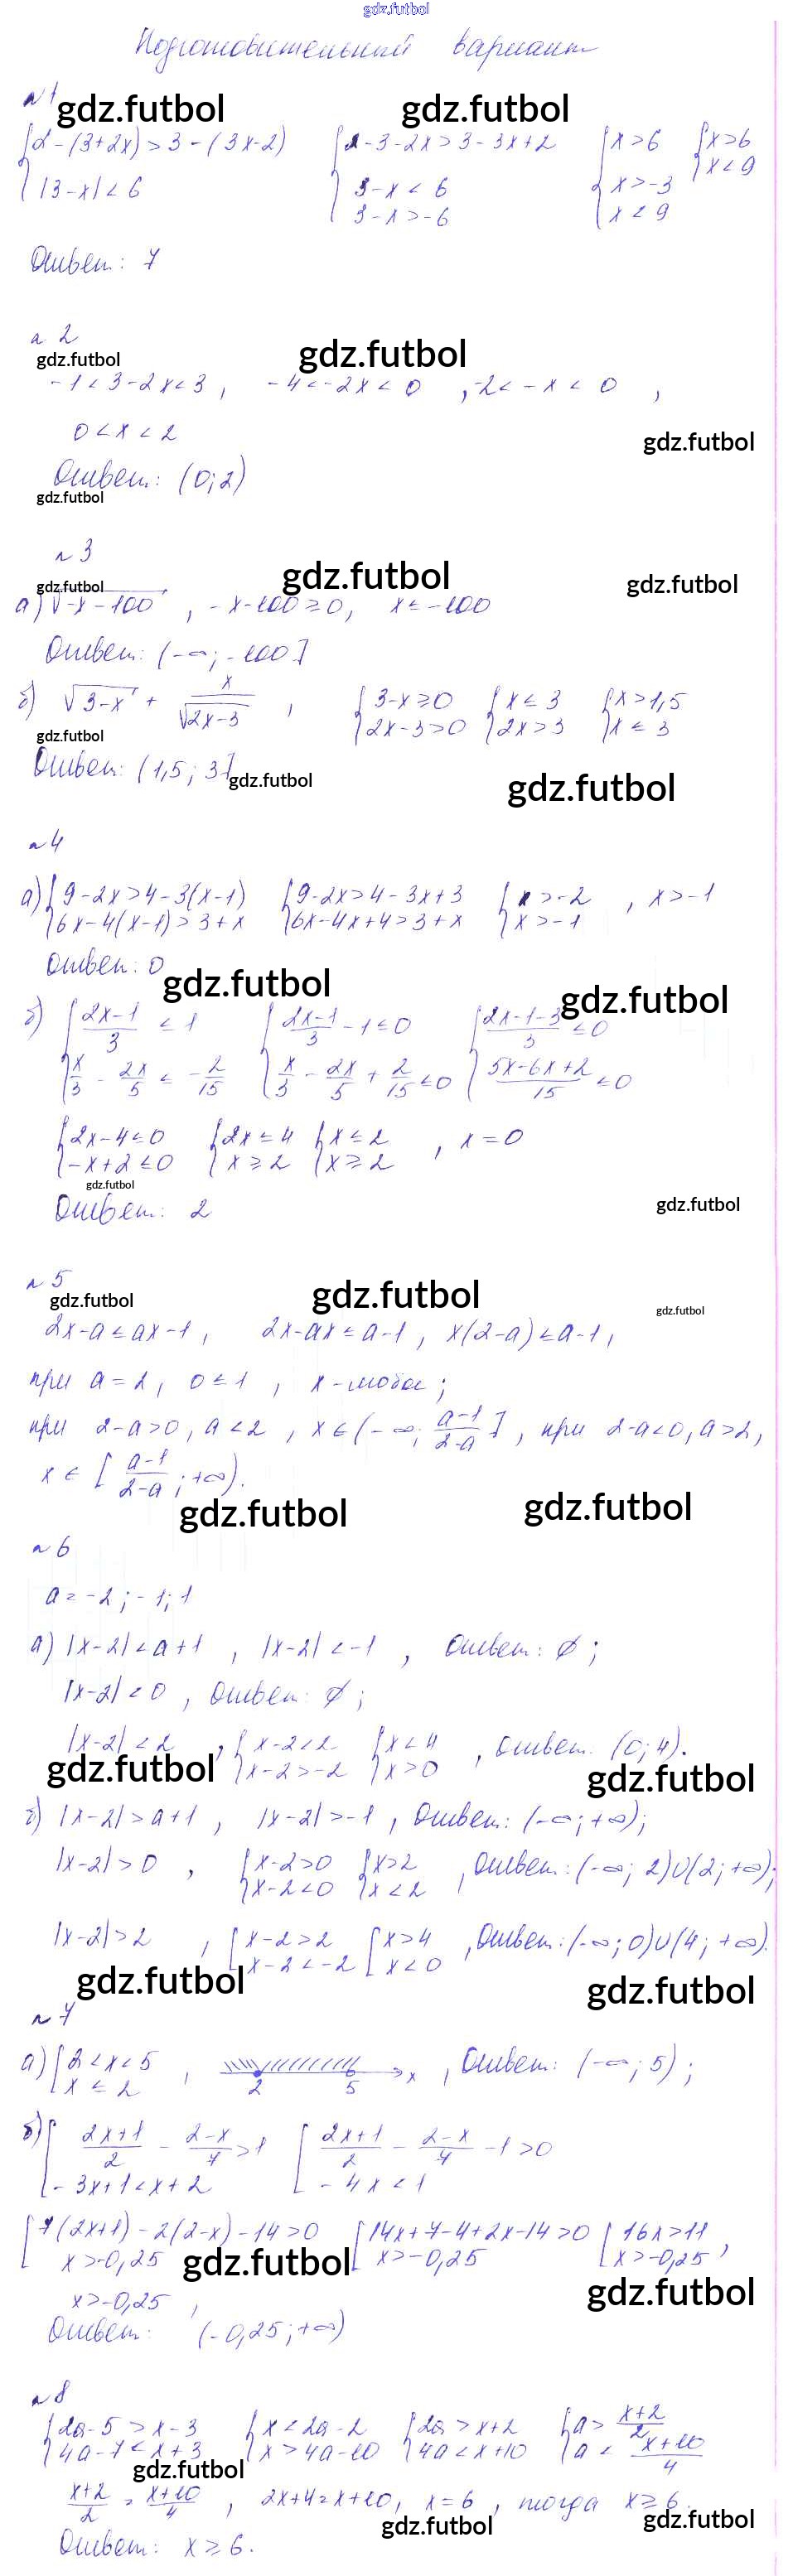 gdz.futbol
Подготовительный вариант
№1
gdz.futbol gdz.futbol
{2-(3+2x)>3-(3x-2) {2-3-2x>3-3x+2 {x>6 {x>6
|3-x|<6 3-x<6 x>-3 x<9
3-x>-6 x<9
Ответ: 7
№2
gdz.futbol gdz.futbol
-1<3-2x<3, -4<-2x<0, -2<-x<0,
0<x<2
gdz.futbol
Ответ: (0;2)
gdz.futbol
№3
gdz.futbol gdz.futbol gdz.futbol
а) √-x-100, -x-100≥0, x≤-100
Ответ: (-∞;-100]
б) √3-x + x/√2x-3, {3-x≥0 {x≤3 {x>1,5
2x-3>0 2x>3 x≤3
gdz.futbol
Ответ: (1,5; 3]
gdz.futbol gdz.futbol
№4
а) {9-2x>4-3(x-1) {9-2x>4-3x+3 {x>-2, x>-1
6x-4(x-1)>3+x 6x-4x+4>3+x x>-1
Ответ: 0
gdz.futbol gdz.futbol
б) {(2x-1)/3 ≤ 1 {(2x-1)/3 -1≤0 {(2x-1-3)/3 ≤0
x/3 - 2x/5 ≤ -2/15 x/3 - 2x/5 + 2/15 ≤0 (5x-6x+2)/15 ≤0
{2x-4≤0 {2x≤4 {x≤2, x=0
-x+2≤0 x≥2 x≥2
gdz.futbol
Ответ: 2
gdz.futbol
№5
gdz.futbol gdz.futbol gdz.futbol
2x-a≤ax-1, 2x-ax≤a-1, x(2-a)≤a-1,
при a=2, 0≤1, x-любое;
при 2-a>0, a<2, x∈(-∞; (a-1)/(2-a)], при 2-a<0, a>2,
x∈[(a-1)/(2-a); +∞).
gdz.futbol gdz.futbol
№6
a=-2; -1; 1
а) |x-2|<a+1, |x-2|<-1, Ответ: ∅;
|x-2|<0, Ответ: ∅;
|x-2|<2, {x-2<2 {x<4, Ответ: (0;4).
x-2>-2 x>0
gdz.futbol gdz.futbol
б) |x-2|>a+1, |x-2|>-1, Ответ: (-∞;+∞);
|x-2|>0, {x-2>0 {x>2, Ответ: (-∞; 2)∪(2; +∞);
x-2<0 x<2
|x-2|>2, [x-2>2 [x>4, Ответ: (-∞;0)∪(4; +∞).
x-2<-2 x<0
gdz.futbol gdz.futbol
№7
а) [2<x<5, 2 5 x, Ответ: (-∞; 5);
x≤2
б) [(2x+1)/2 - (2-x)/7 >1 [(2x+1)/2 - (2-x)/7 -1>0
-3x+1<x+2 -4x<1
[7(2x+1)-2(2-x)-14>0 [14x+7-4+2x-14>0 [16x>11
x>-0,25 x>-0,25 x>-0,25,
gdz.futbol gdz.futbol
x>-0,25,
Ответ: (-0,25;+∞)
№8
{2a-5>x-3 {x<2a-2 {2a>x+2 {a>(x+2)/2
4a-7<x+3 x>4a-10 4a<x+10 a<(x+10)/4
gdz.futbol
(x+2)/2 = (x+10)/4, 2x+4=x+10, x=6, тогда x≥6.
gdz.futbol gdz.futbol
Ответ: x≥6.